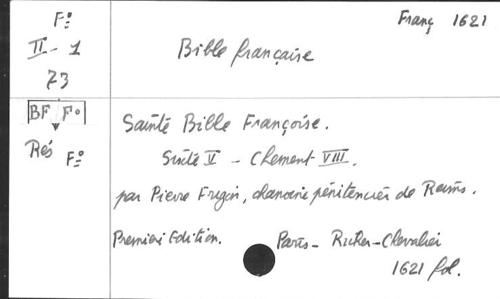 Fo
II - 1
73
Franç 1621
Bible française
BF Fo
Rés Fo
Sainte Bible Françoise.
Sixte V - Clement VIII.
par Pierre Frizon, chanoine pénitencier de Reims.
Première Edition. Paris - Richer - Chevalier
1621 fol.